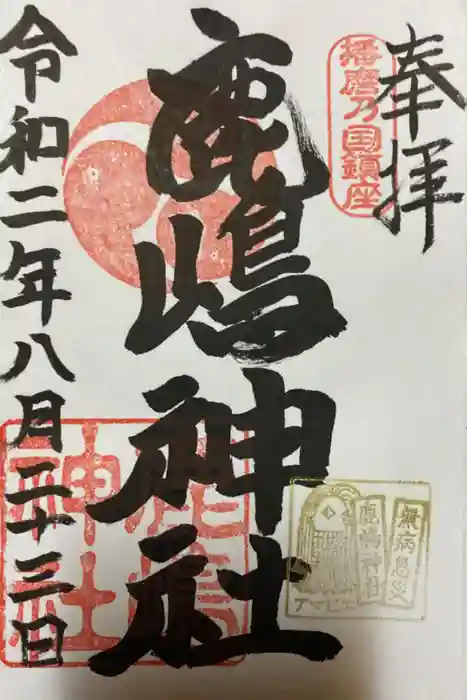 奉拝
播磨乃国鎮座
鹿嶋神社
令和二年八月二十三日
鹿嶋神社
無病息災
鹿嶋神社
アマビエ